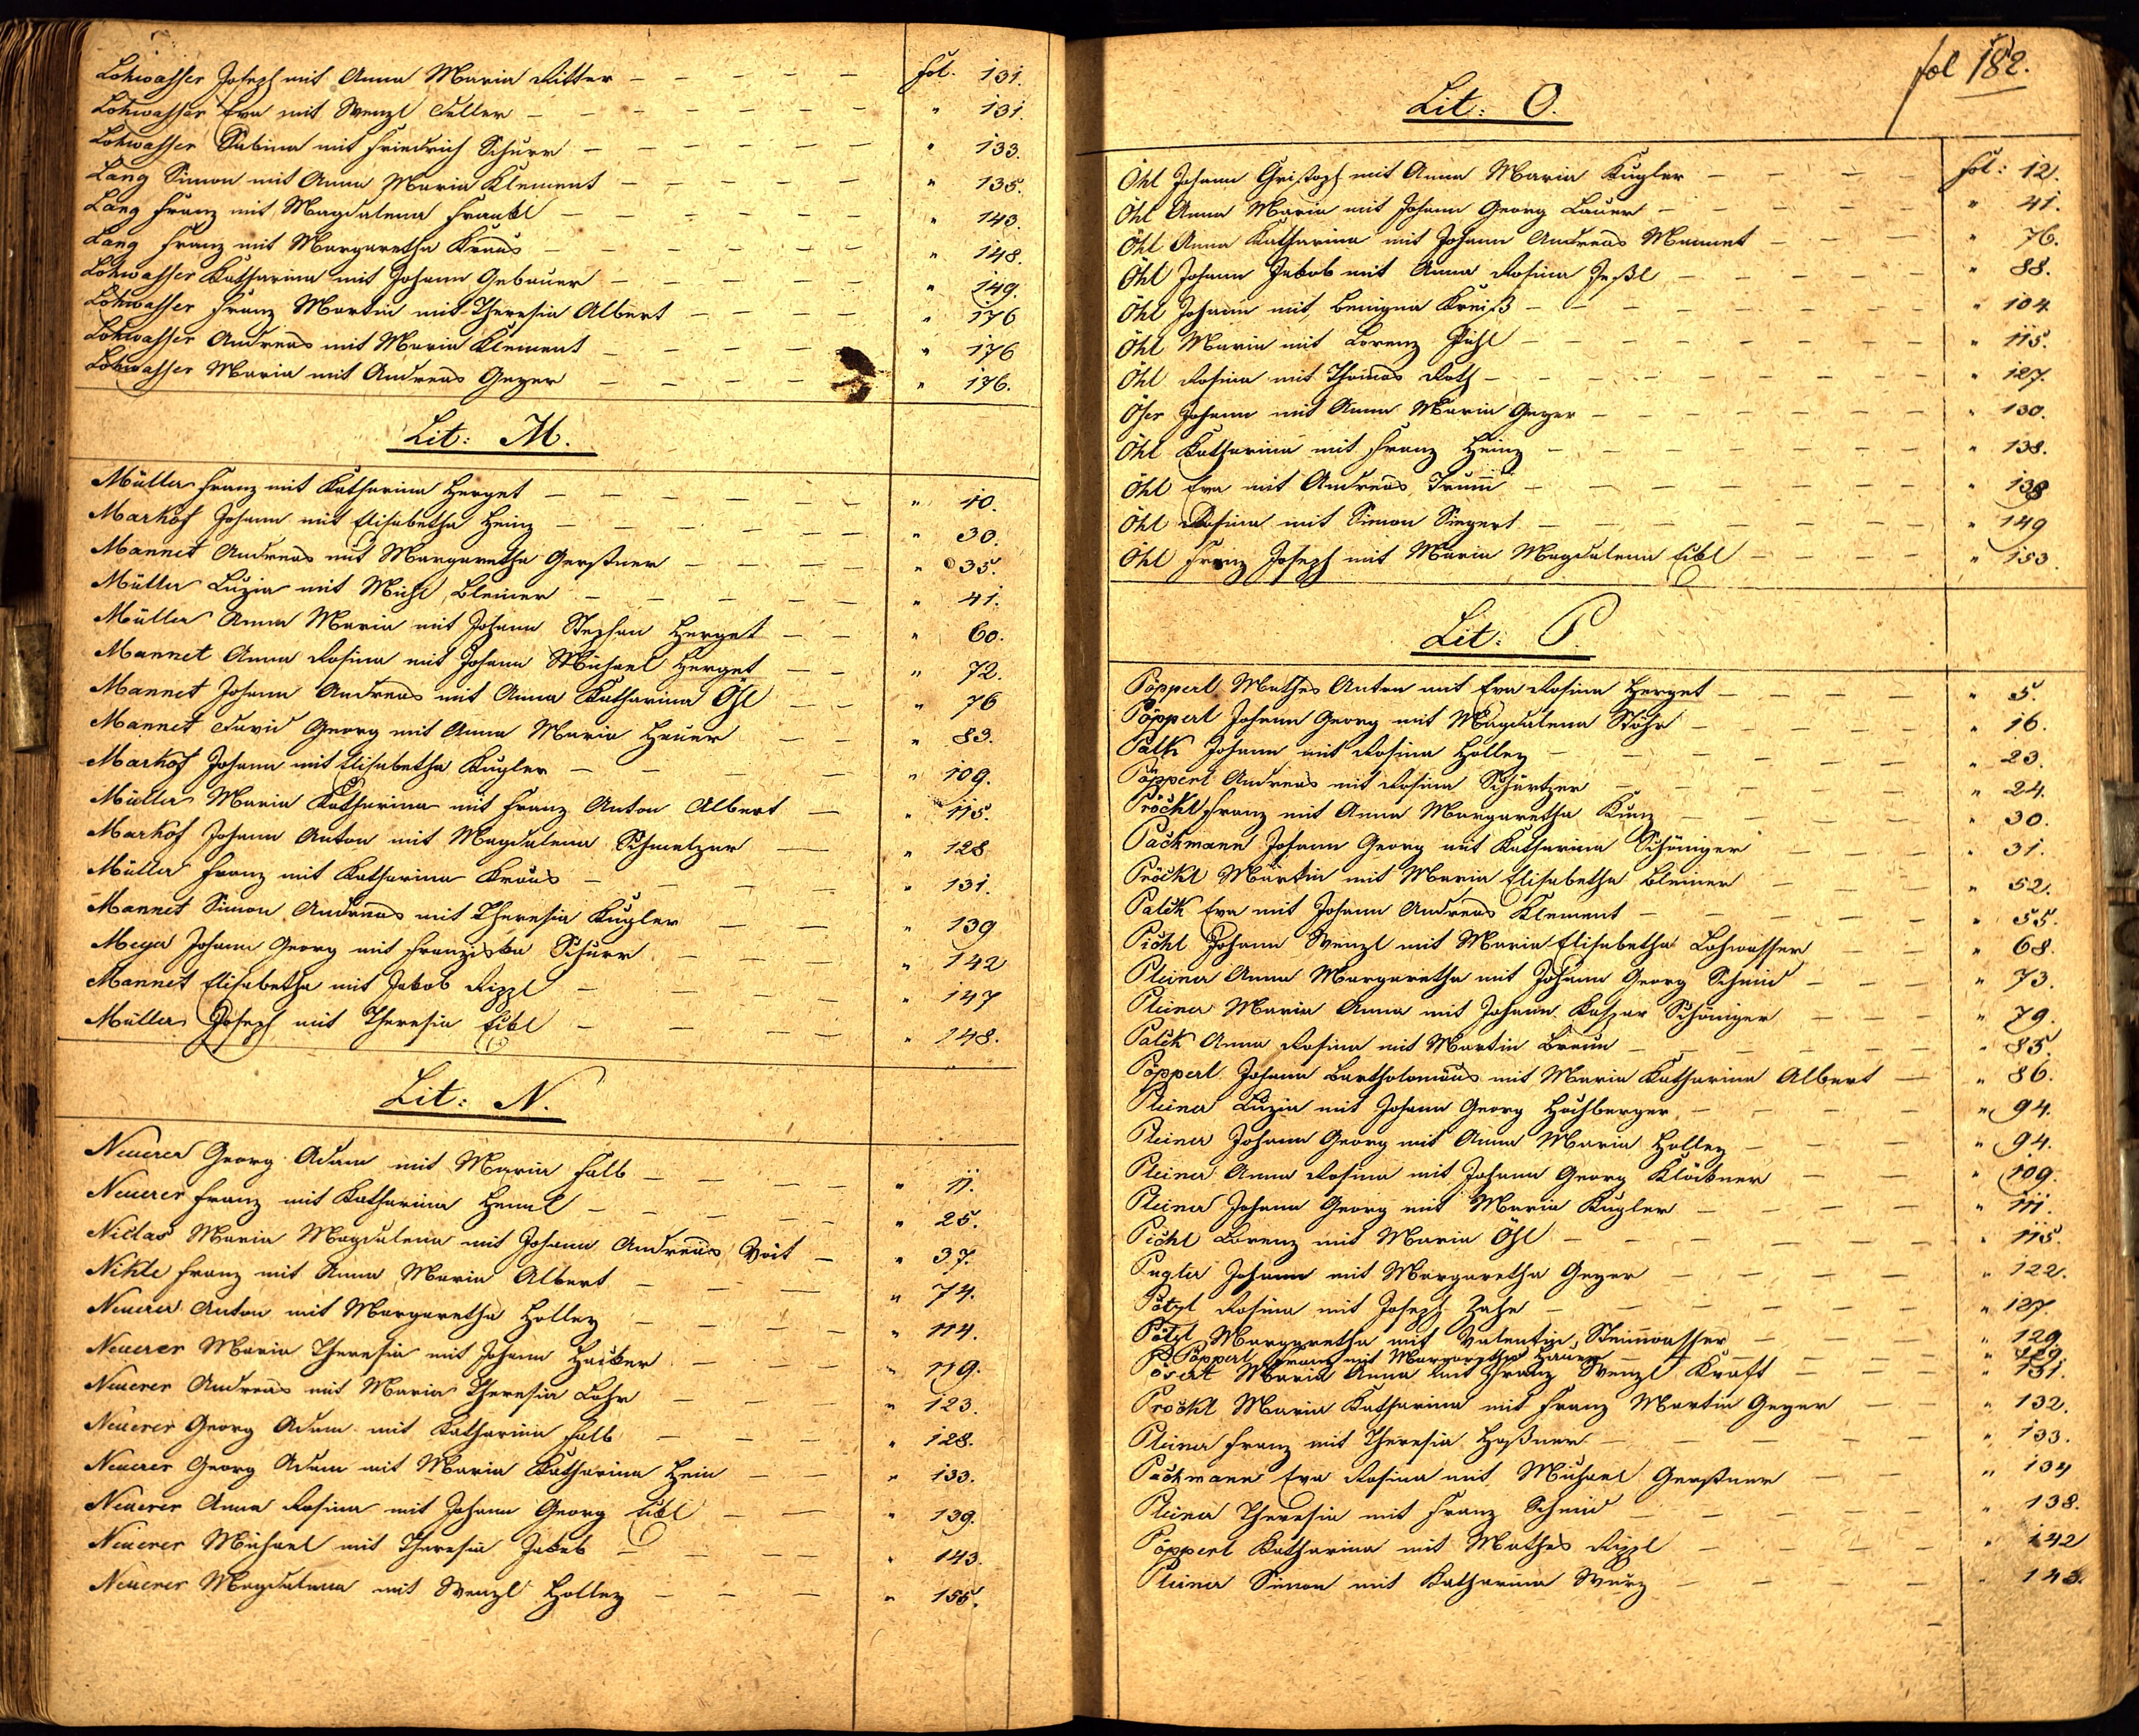 Lohwasser Joseph mit Anna Maria Ritter fol. 131.
Lohwasser Eva mit Wenzl Teller " 131.
Lohwasser Sabina mit Friedrich Schurr " 133.
Lang Simon mit Anna Maria Klement " 135.
Lang Franz mit Magdalena Frankl " 143.
Lang Franz mit Margaretha Kraus " 148.
Lohwasser Katharina mit Johann Gebauer " 149.
Lohwasser Franz Martin mit Theresia Albert " 176
Lohwasser Andreas mit Maria Klement " 176
Lohwasser Maria mit Andreas Geyer " 176.
Lit: M.
Müller Franz mit Katharina Herget " 10.
Markof Johann mit Elisabetha Heinz " 30.
Mannet Andreas mit Margaretha Gerstner " 35.
Müller Luzia mit Michl Bleiner " 41.
Müller Anna Maria mit Johann Stephan Herget " 60.
Mannet Anna Rosina mit Johann Michael Herget " 72.
Mannet Johann Andreas mit Anna Katharina Öhl " 76
Mannet David Georg mit Anna Maria Heuer " 83.
Markof Johann mit Elisabetha Kugler " 109.
Müller Maria Katharina mit Franz Anton Albert " 115.
Markof Johann Anton mit Magdalena Schmelzer " 128
Müller Franz mit Katharina Kraus " 131.
Mannet Simon Andreas mit Theresia Kugler " 139
Meyer Johann Georg mit Franziska Schurr " 142
Mannet Elisabetha mit Jakob Rippl " 147
Müller Joseph mit Theresia Eibl " 148.
Lit: N.
Neuerer Georg Adam mit Maria Falb " 11.
Neuerer Franz mit Katharina Heml " 25.
Niclas Maria Magdalena mit Johann Andreas Voit " 37.
Nikle Franz mit Anna Maria Albert " 74.
Neuerer Anton mit Margaretha Holley " 114.
Neuerer Maria Theresia mit Johann Hacker " 119.
Neuerer Andreas mit Maria Theresia Lohr " 123.
Neuerer Georg Adam mit Katharina Falb " 128.
Neuerer Georg Adam mit Maria Katharina Hein " 133.
Neuerer Anna Rosina mit Johann Georg Eibl " 139.
Neuerer Michael mit Theresia Jakob " 143.
Neuerer Magdalena mit Wenzl Holley " 155.
fol 182.
Lit: O.
Öhl Johann Christoph mit Anna Maria Kugler fol: 12.
Öhl Anna Maria mit Johann Georg Bauer " 41.
Öhl Anna Katharina mit Johann Andreas Mannet " 76.
Öhl Johann Jakob mit Anna Rosina Jeßl " 88.
Öhl Johann mit Benigna Kreiß " 104.
Öhl Maria mit Lorenz Pichl " 115.
Öhl Rosina mit Thomas Roth " 127.
Öser Johann mit Anna Maria Geyer " 130.
Öhl Katharina mit Franz Heinz " 138.
Öhl Eva mit Andreas " 138
Öhl Rosina mit Simon Siegert " 149
Öhl Franz Joseph mit Maria Magdalena Eibl " 153.
Lit: P.
Pöpperl Mathes Anton mit Eva Rosina Herget " 5.
Pöpperl Johann Georg mit Magdalena Stöhr " 16.
Palk Johann mit Rosina Holley " 23.
Pöpperl Andreas mit Rosina Schürtzer " 24.
Pröckl Franz mit Anna Margaretha Kunz " 30.
Pachmann Johann Georg mit Katharina Schöniger " 31.
Pröckl Martin mit Maria Elisabetha Bleiner " 52.
Palck Eva mit Johann Andreas Klement " 55.
Pichl Johann Wenzl mit Maria Elisabetha Lohwasser " 68.
Pleiner Anna Margaretha mit Johann Georg Schmid " 73.
Pleiner Maria Anna mit Johann Kaspar Schöniger " 79.
Palck Anna Rosina mit Martin Braun " 85.
Pöpperl Johann Bartholomäus mit Maria Katharina Albert " 86.
Pleiner Luzia mit Johann Georg Hochberger " 94.
Pleiner Johann Georg mit Anna Maria Holley " 94.
Pleiner Anna Rosina mit Johann Georg Klöckner " 109.
Pleiner Johann Georg mit Maria Kugler " 111.
Pichl Lorenz mit Maria Öhl " 115.
Pugler Johann mit Margaretha Geyer " 122.
Pötzl Rosina mit Joseph Zahn " 127.
Pötzl Margaretha mit Valentin Steinwasser " 129.
Pöpperl Franz mit Margaretha Hauer " 129.
Maria Anna mit Franz Wenzl Kraft " 131.
Pröckl Maria Katharina mit Franz Martin Geyer " 132.
Pleiner Franz mit Theresia Haßner " 133.
Pachmann Eva Rosina mit Michael Gerstner " 134
Pleiner Theresia mit Franz Schmid " 138.
Pöpperl Katharina mit Mathes Rippl " 142
Pleiner Simon mit Katharina Wurz " 143.